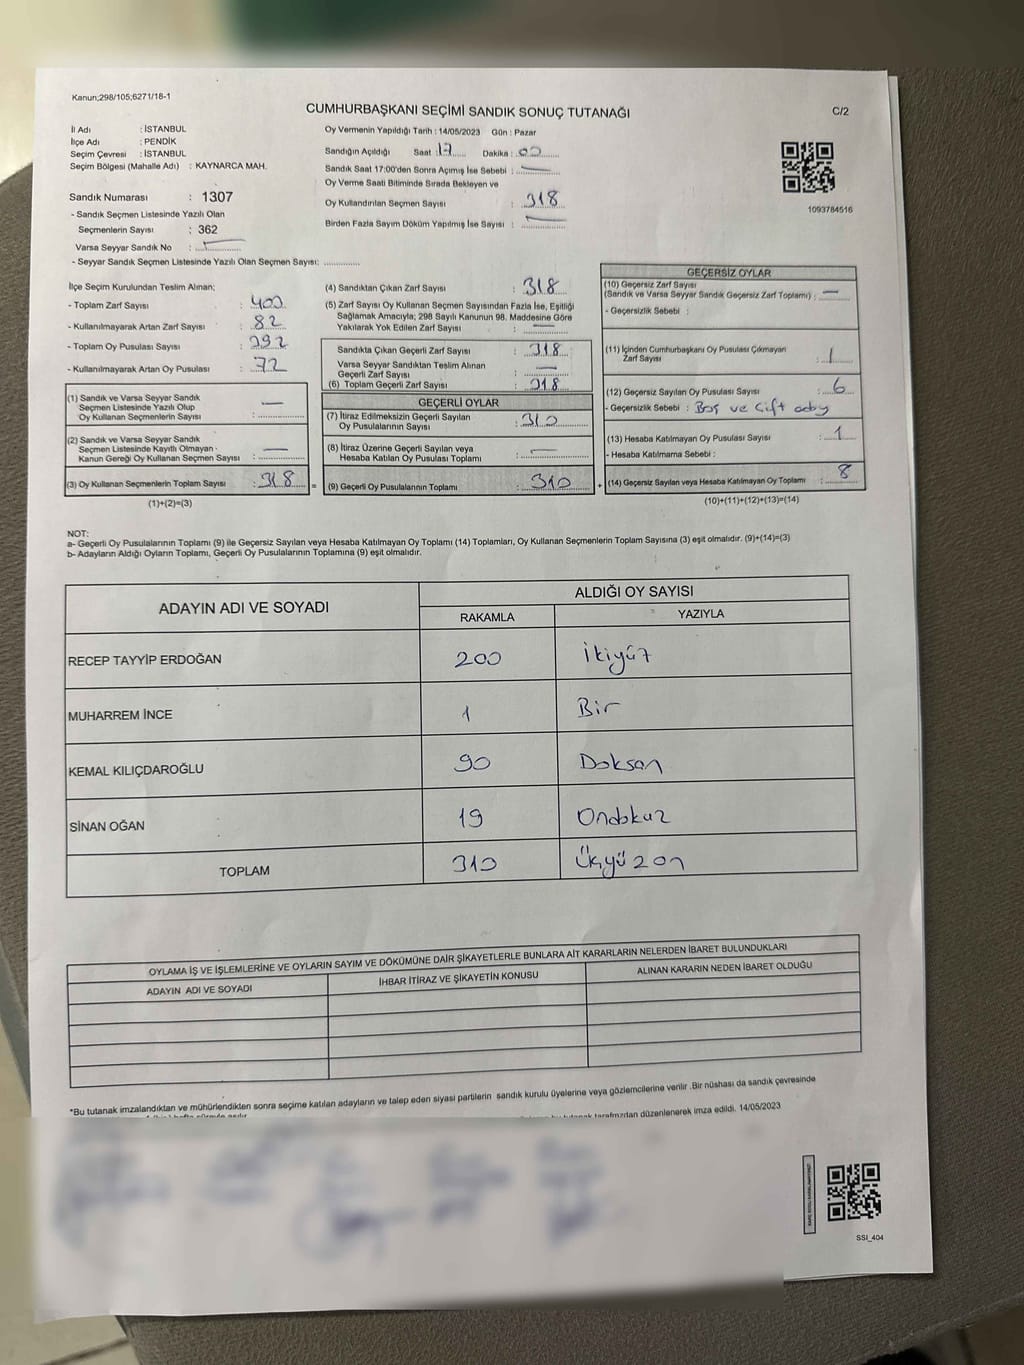 Kanun;298/105;6271/18-1
CUMHURBAŞKANI SEÇİMİ SANDIK SONUÇ TUTANAĞI
C/2
İl Adı : İSTANBUL
İlçe Adı : PENDİK
Seçim Çevresi : İSTANBUL
Seçim Bölgesi (Mahalle Adı) : KAYNARCA MAH.
Sandık Numarası : 1307
- Sandık Seçmen Listesinde Yazılı Olan
Seçmenlerin Sayısı : 362
Varsa Seyyar Sandık No :
- Seyyar Sandık Seçmen Listesinde Yazılı Olan Seçmen Sayısı:
Oy Vermenin Yapıldığı Tarih : 14/05/2023 Gün : Pazar
Sandığın Açıldığı Saat 17 Dakika : 00
Sandık Saat 17:00'den Sonra Açımış İse Sebebi : —
Oy Verme Saati Bitiminde Sırada Bekleyen ve
Oy Kullandırılan Seçmen Sayısı : 318
Birden Fazla Sayım Döküm Yapılmış İse Sayısı : —
1093784516
İlçe Seçim Kurulundan Teslim Alınan;
- Toplam Zarf Sayısı : 400
- Kullanılmayarak Artan Zarf Sayısı : 82
- Toplam Oy Pusulası Sayısı :
- Kullanılmayarak Artan Oy Pusulası : 72
(1) Sandık ve Varsa Seyyar Sandık
Seçmen Listesinde Yazılı Olup
Oy Kullanan Seçmenlerin Sayısı : —
(2) Sandık ve Varsa Seyyar Sandık
Seçmen Listesinde Kayıtlı Olmayan -
Kanun Gereği Oy Kullanan Seçmen Sayısı : —
(3) Oy Kullanan Seçmenlerin Toplam Sayısı : 318
(1)+(2)=(3)
(4) Sandıktan Çıkan Zarf Sayısı : 318
(5) Zarf Sayısı Oy Kullanan Seçmen Sayısından Fazla İse, Eşitliği
Sağlamak Amacıyla; 298 Sayılı Kanunun 98. Maddesine Göre
Yakılarak Yok Edilen Zarf Sayısı : —
Sandıkta Çıkan Geçerli Zarf Sayısı : 318
Varsa Seyyar Sandıktan Teslim Alınan
Geçerli Zarf Sayısı : —
(6) Toplam Geçerli Zarf Sayısı : 318
GEÇERLİ OYLAR
(7) İtiraz Edilmeksizin Geçerli Sayılan
Oy Pusulalarının Sayısı : 310
(8) İtiraz Üzerine Geçerli Sayılan veya
Hesaba Katılan Oy Pusulası Toplamı : —
= (9) Geçerli Oy Pusulalarının Toplamı : 310
GEÇERSİZ OYLAR
(10) Geçersiz Zarf Sayısı
(Sandık ve Varsa Seyyar Sandık Geçersiz Zarf Toplamı) : —
- Geçersizlik Sebebi :
(11) İçinden Cumhurbaşkanı Oy Pusulası Çıkmayan
Zarf Sayısı : 1
(12) Geçersiz Sayılan Oy Pusulası Sayısı : 6
- Geçersizlik Sebebi : Boş ve Çift aday
(13) Hesaba Katılmayan Oy Pusulası Sayısı : 1
- Hesaba Katılmama Sebebi :
+ (14) Geçersiz Sayılan veya Hesaba Katılmayan Oy Toplamı : 8
(10)+(11)+(12)+(13)=(14)
NOT:
a- Geçerli Oy Pusulalarının Toplamı (9) ile Geçersiz Sayılan veya Hesaba Katılmayan Oy Toplamı (14) Toplamları, Oy Kullanan Seçmenlerin Toplam Sayısına (3) eşit olmalıdır. (9)+(14)=(3)
b- Adayların Aldığı Oyların Toplamı, Geçerli Oy Pusulalarının Toplamına (9) eşit olmalıdır.
ADAYIN ADI VE SOYADI
ALDIĞI OY SAYISI
RAKAMLA YAZIYLA
RECEP TAYYİP ERDOĞAN 200 İkiyüz
MUHARREM İNCE 1 Bir
KEMAL KILIÇDAROĞLU 90 Doksan
SİNAN OĞAN 19 Ondokuz
TOPLAM 310 Üçyüz on
OYLAMA İŞ VE İŞLEMLERİNE VE OYLARIN SAYIM VE DÖKÜMÜNE DAİR ŞİKAYETLERLE BUNLARA AİT KARARLARIN NELERDEN İBARET BULUNDUKLARI
ADAYIN ADI VE SOYADI İHBAR İTİRAZ VE ŞİKAYETİN KONUSU ALINAN KARARIN NEDEN İBARET OLDUĞU
*Bu tutanak imzalandıktan ve mühürlendikten sonra seçime katılan adayların ve talep eden siyasi partilerin sandık kurulu üyelerine veya gözlemcilerine verilir .Bir nüshası da sandık çevresinde
tutanak tarafımızdan düzenlenerek imza edildi. 14/05/2023
SSI_404